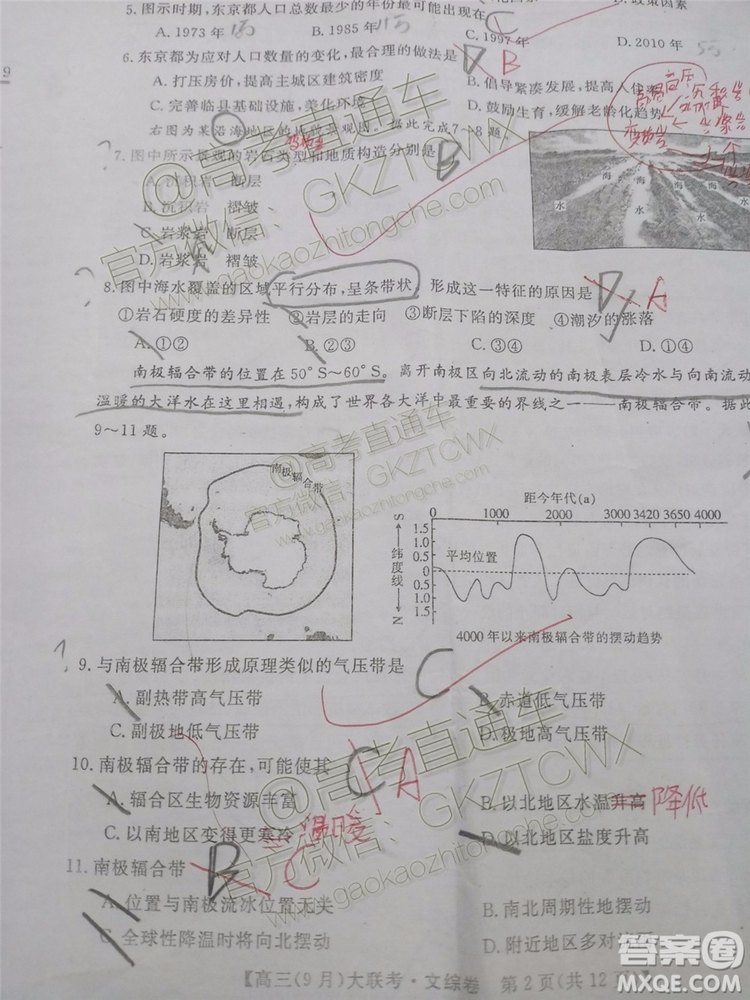 5. 图示时期，东京都人口总数最少的年份最可能出现在 C
A. 1973 年 B. 1985 年 C. 1997 年 D. 2010 年
6. 东京都为应对人口数量的变化，最合理的做法是 D B
A. 打压房价，提高主城区建筑密度 B. 倡导紧凑发展，提高人
C. 完善临县基础设施，美化环境 D. 鼓励生育，缓解老龄化趋势
右图为某沿海地区的 景观图。据此完成7～8题。
7. 图中所示景观的岩石类型和地质构造分别是 B
A. 沉积岩 断层
B. 沉积岩 褶皱
C. 岩浆岩 断层
D. 岩浆岩 褶皱
海 海 海
水 水 水 水
8. 图中海水覆盖的区域平行分布，呈条带状，形成这一特征的原因是 D A
①岩石硬度的差异性 ②岩层的走向 ③断层下陷的深度 ④潮汐的涨落
A. ①② B. ②③ C. ③④ D. ①④
南极辐合带的位置在50°S～60°S。离开南极区向北流动的南极表层冷水与向南流动
温暖的大洋水在这里相遇，构成了世界各大洋中最重要的界线之一——南极辐合带。据此
9～11题。
南极辐合带
距今年代(a)
0 1000 2000 3000 3420 3650 4000
S 纬度线 N
1.5
1.0
0.5
0
0.5
1.0
1.5
平均位置
4000 年以来南极辐合带的摆动趋势
9. 与南极辐合带形成原理类似的气压带是 C
A. 副热带高气压带 B. 赤道低气压带
C. 副极地低气压带 D. 极地高气压带
10. 南极辐合带的存在，可能使其 C A
A. 辐合区生物资源丰富 B. 以北地区水温升高 降低
C. 以南地区变得更寒冷 温暖 D. 以北地区盐度升高
11. 南极辐合带 B C
A. 位置与南极流冰位置无关 B. 南北周期性地摆动
C. 全球性降温时将向北摆动 D. 附近地区多对
【高三(9月)大联考·文综卷 第2页(共12
@高考直通车
官方微信：GKZTCWX
www.gaokaozhitongche.com
@高考直通车
官方微信：GKZTCWX
@高考直通车
官方微信：GKZTCWX
www.gaokaozhitongche.com
答案圈
MXQE.COM